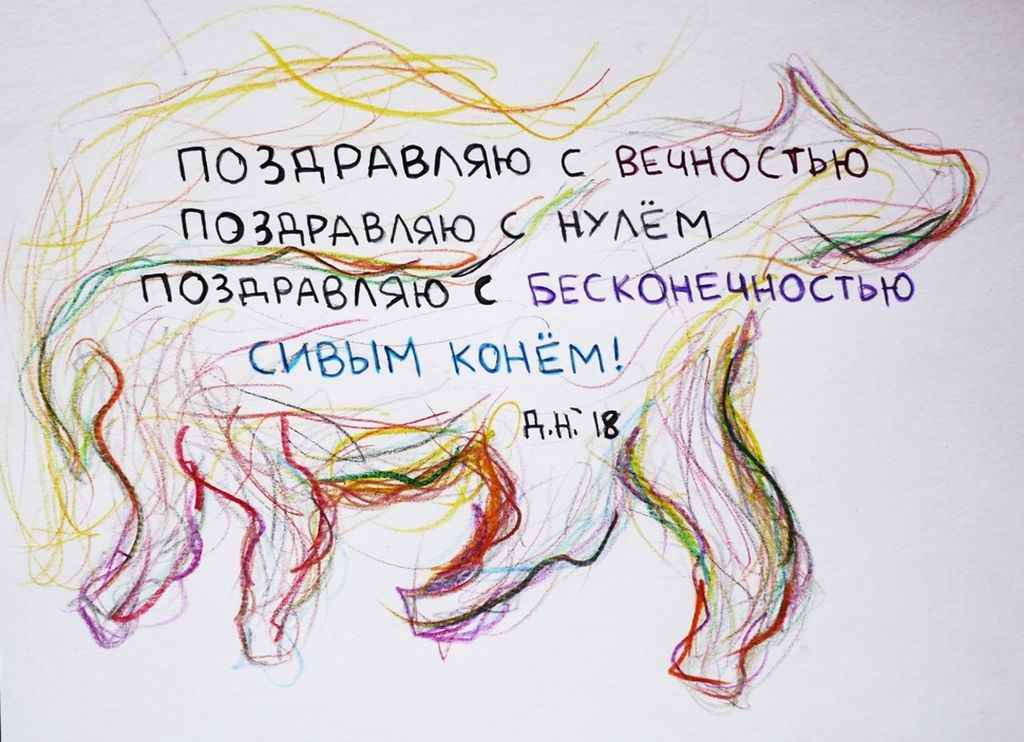 ПОЗДРАВЛЯЮ С ВЕЧНОСТЬЮ
ПОЗДРАВЛЯЮ С НУЛЁМ
ПОЗДРАВЛЯЮ С БЕСКОНЕЧНОСТЬЮ
СИВЫМ КОНЁМ!
Д.Н.`18